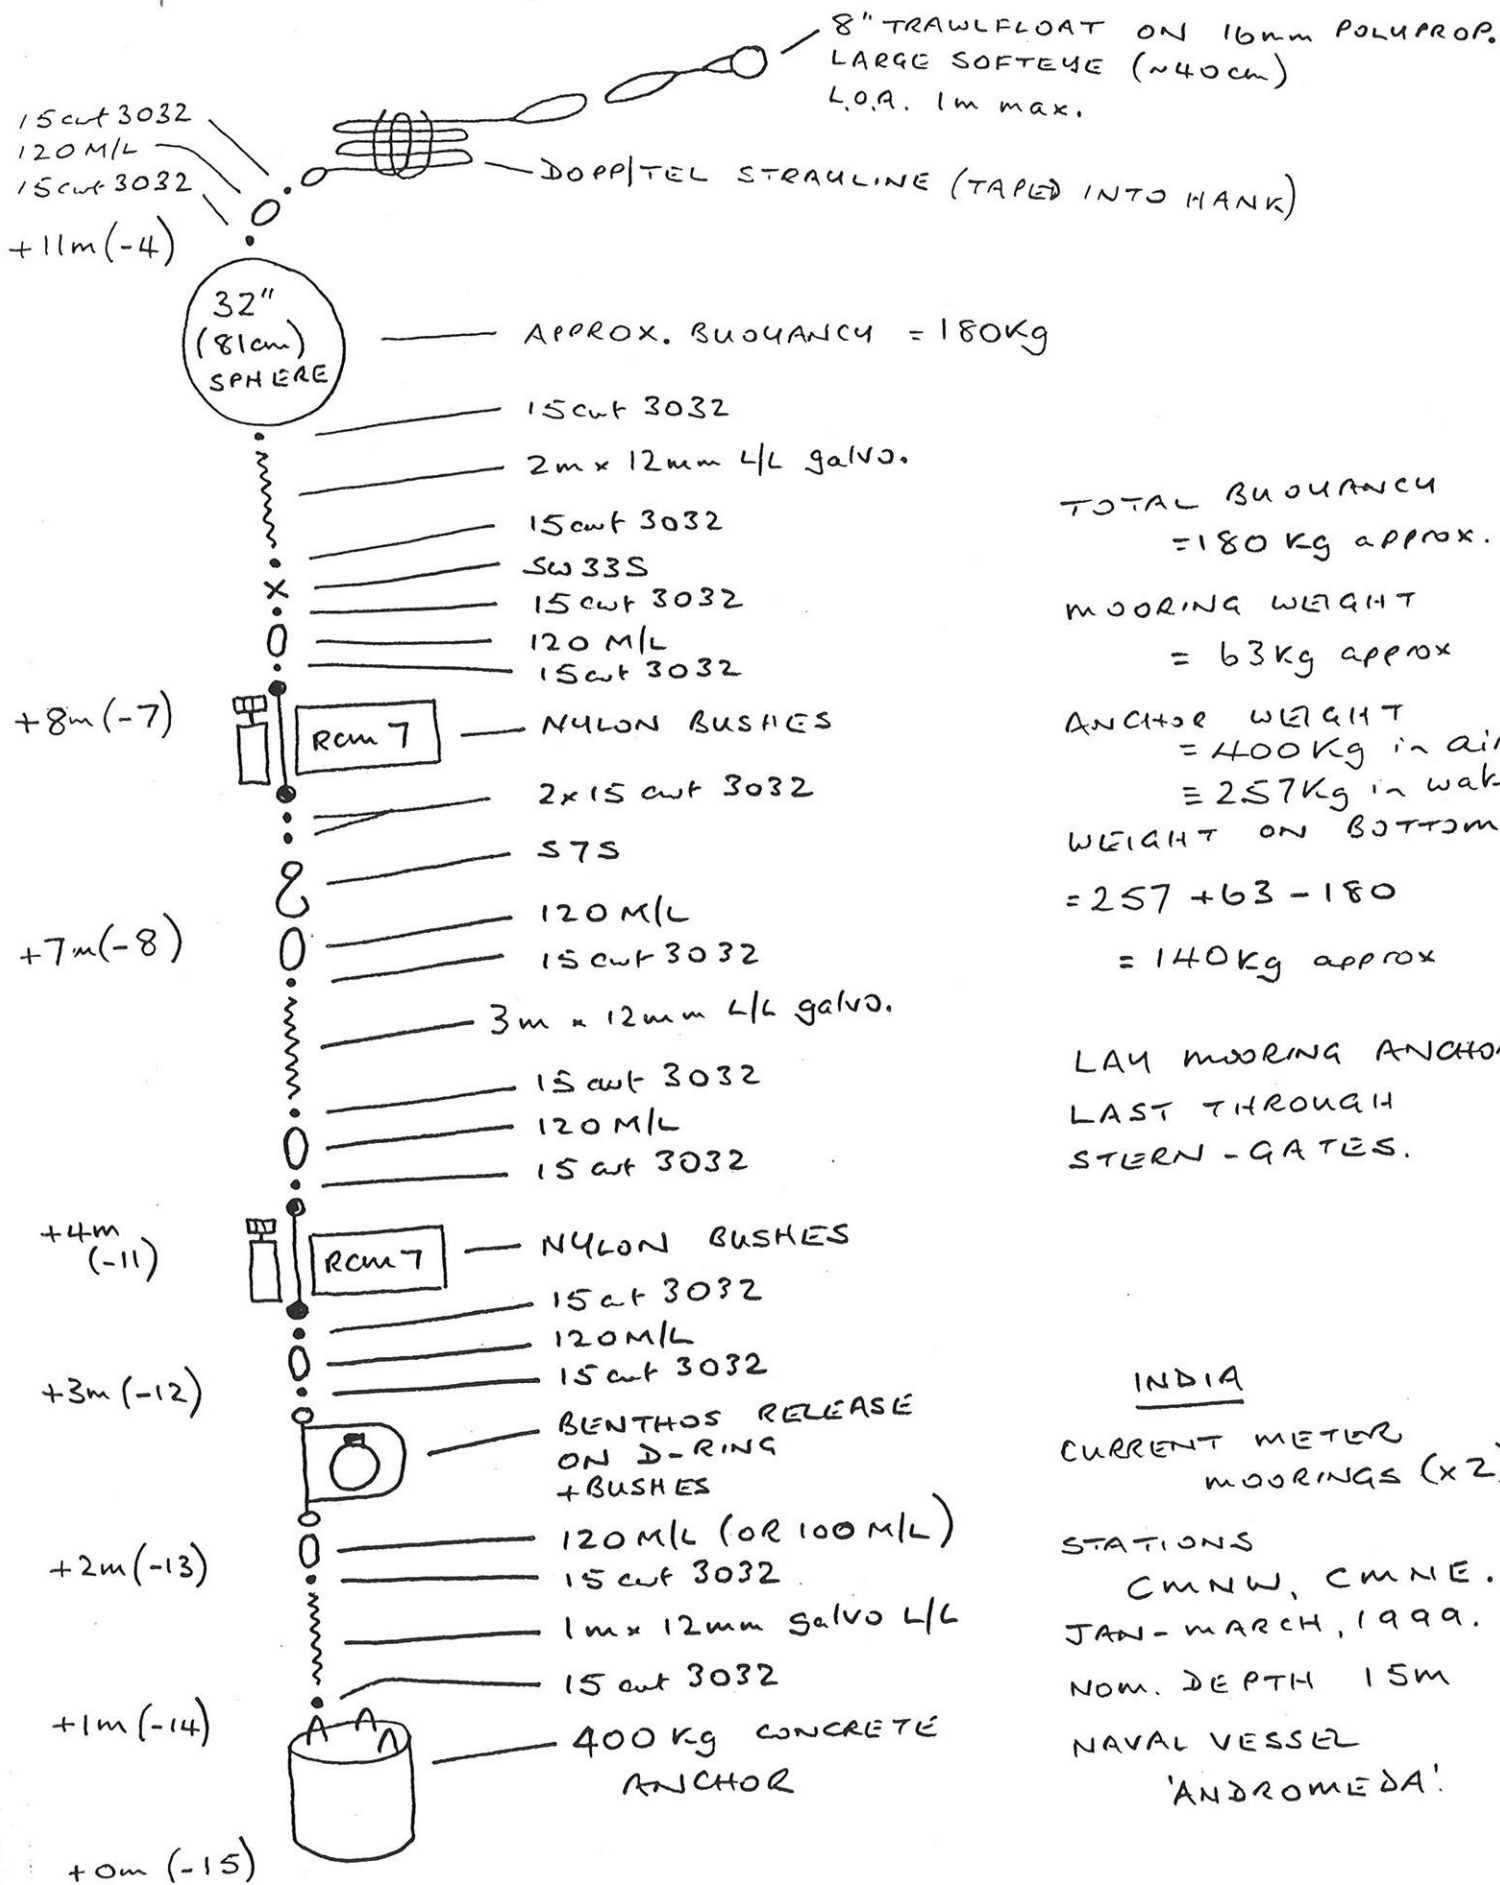 8" TRAWLFLOAT ON 16mm POLYPROP.
LARGE SOFTEYE (~40cm)
L.O.A. 1m max.
15cwt 3032
120 M/L
15cwt 3032
DOPP/TEL STRAYLINE (TAPED INTO HANK)
+11m (-4)
32"
(81cm)
SPHERE
APPROX. BUOYANCY = 180Kg
15cwt 3032
2m x 12mm L/L galvo.
15cwt 3032
SW33S
15cwt 3032
120 M/L
15cwt 3032
+8m (-7)
RCM 7
NYLON BUSHES
2x15 cwt 3032
S7S
120 M/L
+7m (-8)
15cwt 3032
3m x 12mm L/L galvo.
15 cwt 3032
120 M/L
15 cwt 3032
+4m
(-11)
RCM 7
NYLON BUSHES
15cwt 3032
120 M/L
15cwt 3032
+3m (-12)
BENTHOS RELEASE
ON D-RING
+BUSHES
120 M/L (OR 100 M/L)
+2m (-13)
15cwt 3032
1m x 12mm galvo L/L
15 cwt 3032
+1m (-14)
400 Kg CONCRETE
ANCHOR
+0m (-15)
TOTAL BUOYANCY
=180 Kg approx.
MOORING WEIGHT
= 63Kg approx
ANCHOR WEIGHT
= 400Kg in air
≡ 257Kg in wat
WEIGHT ON BOTTOM
= 257 + 63 - 180
= 140Kg approx
LAY MOORING ANCHO
LAST THROUGH
STERN-GATES.
INDIA
CURRENT METER
MOORINGS (x2)
STATIONS
CMNW, CMNE.
JAN-MARCH, 1999.
NOM. DEPTH 15M
NAVAL VESSEL
'ANDROMEDA'.